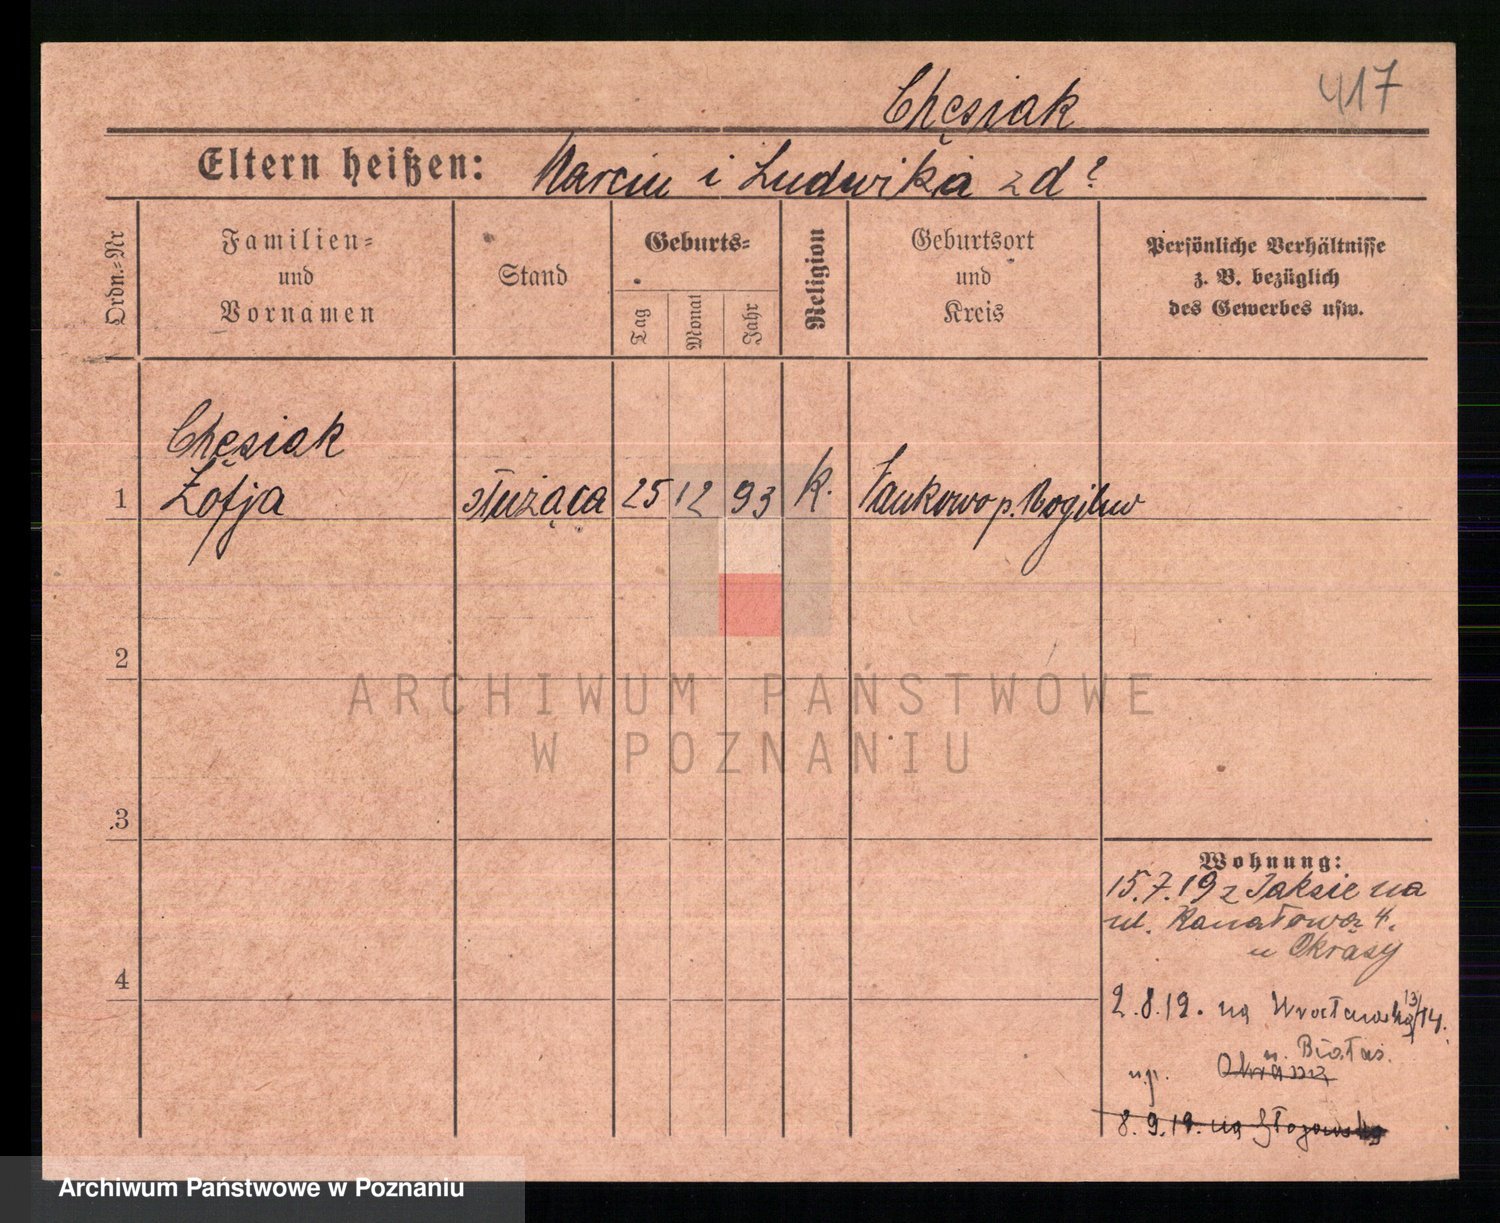 417
Chęsiak
Eltern heißen: Marcin i Ludwika z d?
Ordn.=Nr
Familien=
und
Vornamen
Stand
Geburts=
Tag
Monat
Jahr
Religion
Geburtsort
und
Kreis
Persönliche Verhältnisse
z. B. bezüglich
des Gewerbes usw.
Chęsiak
1 Zofja służąca 25 12 93 k.
2
ARCHIWUM PAŃSTWOWE
W POZNANIU
3
4
Wohnung:
15.7.19 z Jaksic na
ul. Kanałowa 4.
u Okrasy
2.8.19. na Wrocławską 13/14.
u. Białas.
8.9.19. na Głogowską
Archiwum Państwowe w Poznaniu